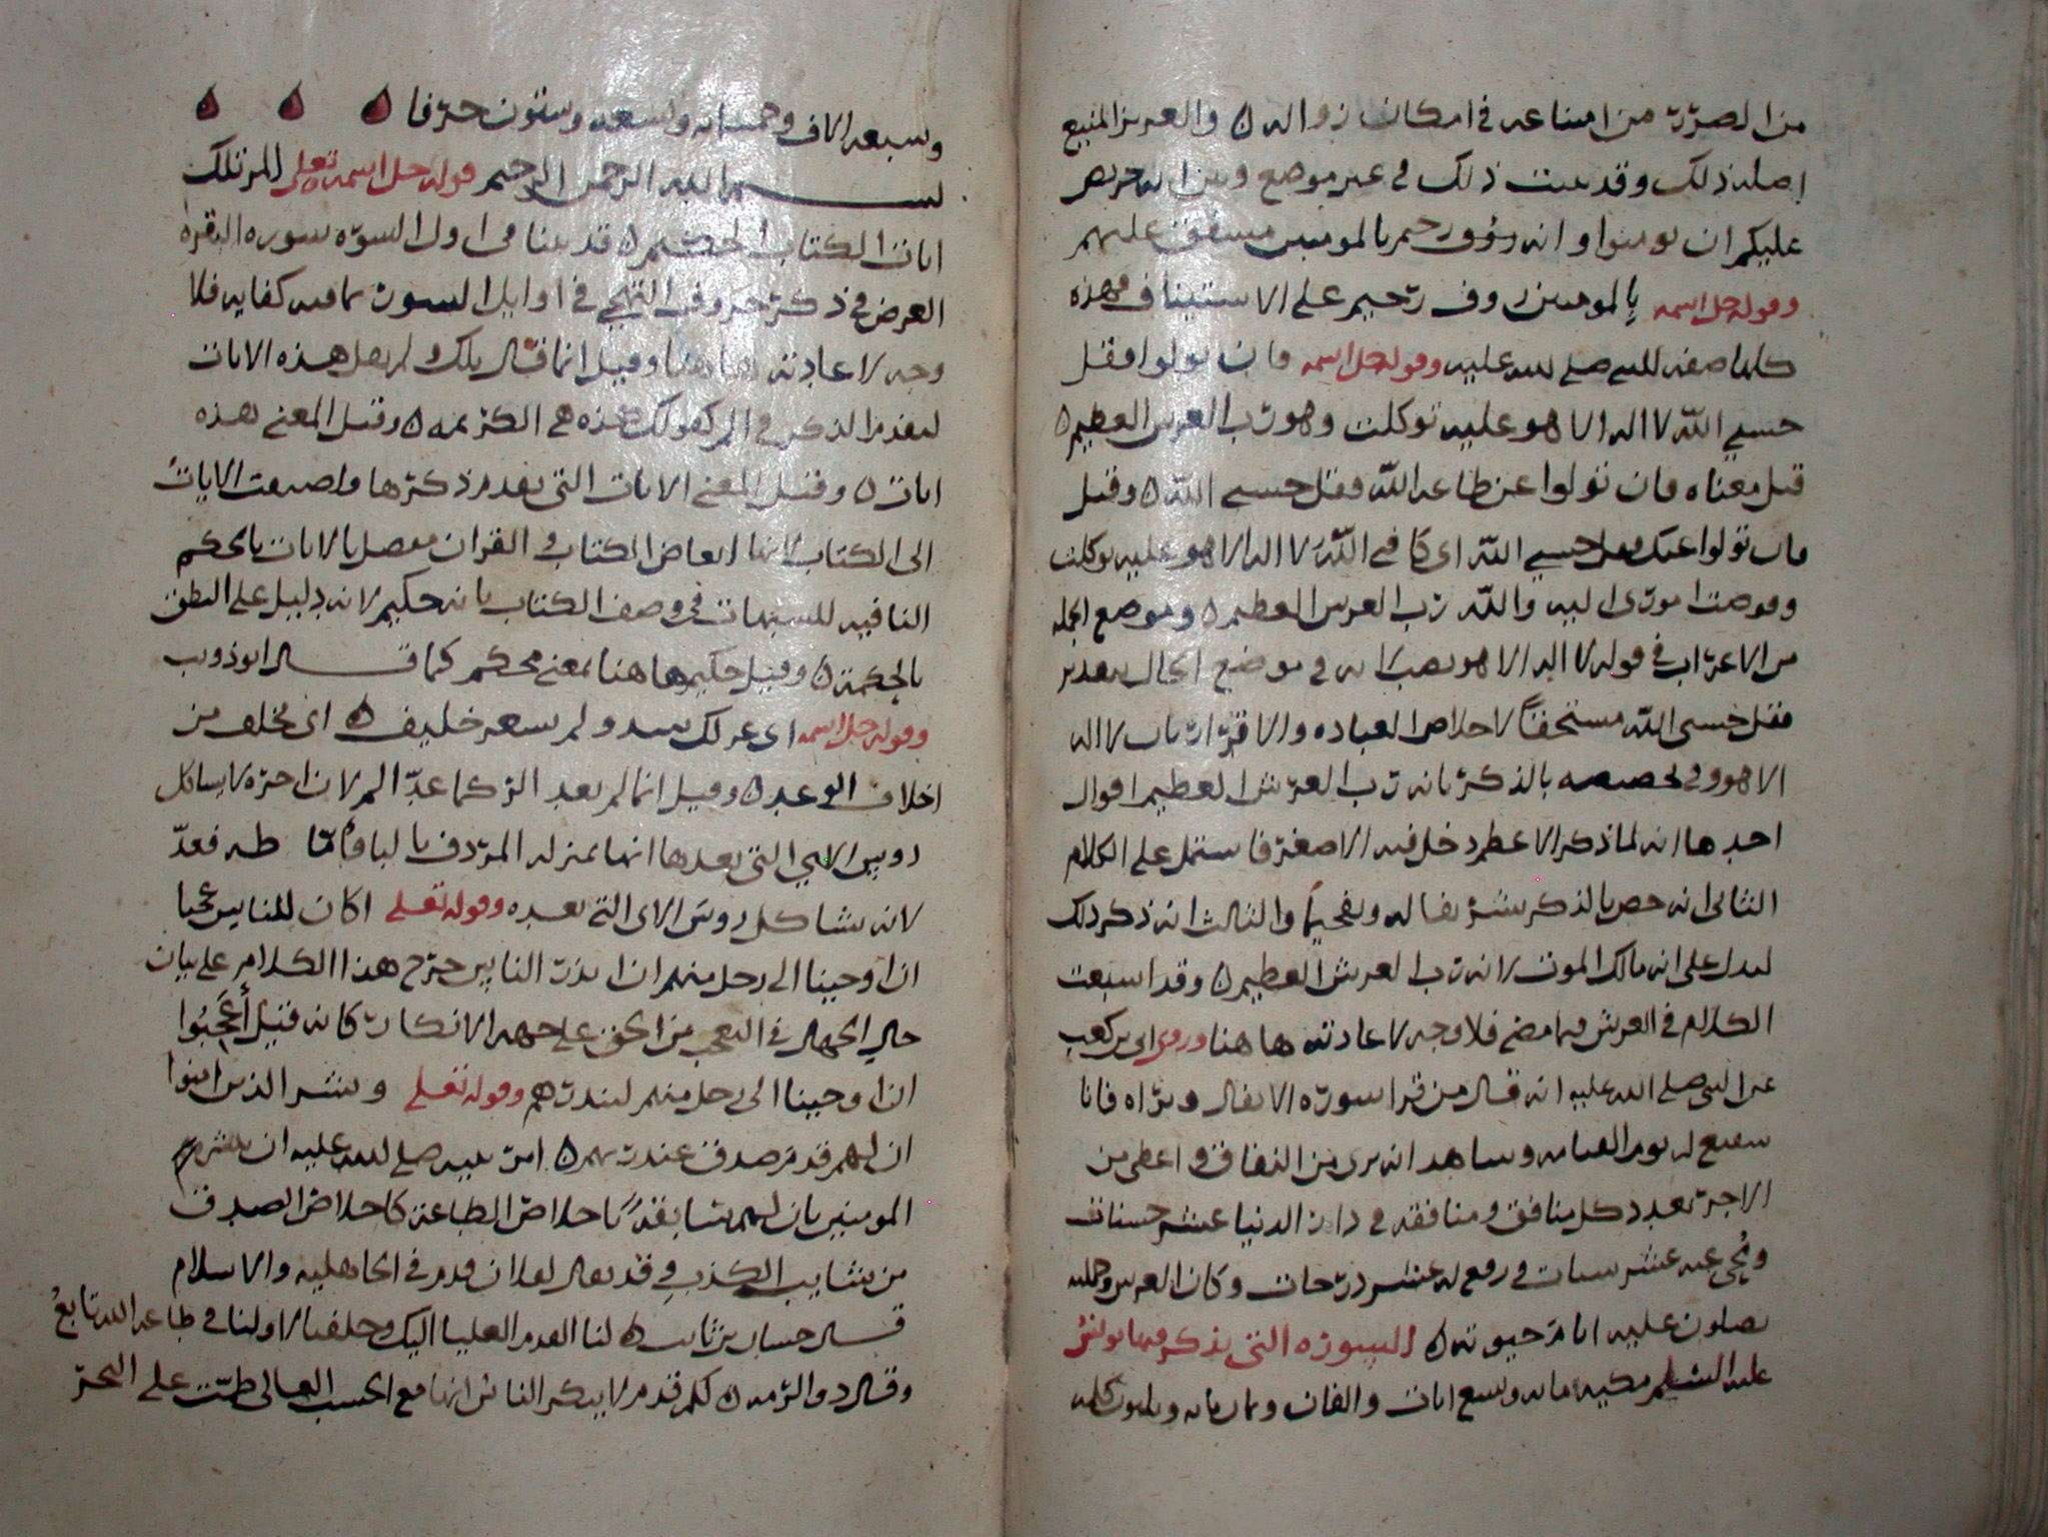 من الضرر من امتناعه في امكان زواله ٥ والعزيز المنيع
اصله ذلك وقد بينت ذلك في غير موضع وبين انه حريص
عليكم ان تومنوا وانه رؤوف رحيم بالمومنين مشفق عليهم
وقوله جل اسمه بالمومنين روف رحيم على الاستيناف فهذه
كلها صفه للنبي صلى الله عليه وقوله جل اسمه فان تولوا فقل
حسبي الله لا اله الا هو عليه توكلت وهو رب العرش العظيم ٥
قيل معناه فان تولوا عن طاعه الله فقل حسبي الله ٥ وقيل
فان تولوا عنك فقل حسبي الله اي كافي الله لا اله الا هو عليه توكلت
وفوضت اموري اليه والله رب العرش العظيم ٥ وموضع الجمله
من الاعراب في قوله لا اله الا هو نصب لانه في موضع الحال بتقدير
فقل حسبي الله مستحقا لاخلاص العباده والاقرار بان لا اله
الا هو وفي تخصيصه بالذكر بانه رب العرش العظيم اقوال
احدها انه لما ذكر الاعظم دخل فيه الاصغر فاشتمل على الكلام
الثاني انه خص بالذكر تشريفا له وتفخيما والثالث انه ذكر ذلك
ليدل على انه مالك الملوك لانه رب العرش العظيم ٥ وقد اسبعت
الكلام في العرش فيما مضى فلا وجه لاعادته ها هنا وروى ابي بن كعب
عن النبي صلى الله عليه انه قال من قرا سوره الانفال وبراه فانا
شفيع له يوم القيامه وشاهد انه بري من النفاق واعطي من
الاجر بعدد كل منافق ومنافقه في دار الدنيا عشر حسنات
ومحي عنه عشر سيات ورفع له عشر درجات وكان العرش وحملته
يصلون عليه ايام حيوته ٥ السوره التي يذكر فيها يونس
عليه السلم مكيه مايه وتسع ايات والفان وثمان مايه وثلثون كلمه
وسبعه الاف وخمس مايه وسبعه وستون حرفا
بسم الله الرحمن الرحيم قوله جل اسمه تعلى الر تلك
ايات الكتاب الحكيم ٥ قد بينا في اول السوره سوره البقره
الغرض في ذكر حروف التهجي في اوايل السور بما فيه كفايه فلا
وجه لاعادته ها هنا وقيل انما قال تلك ولم يقل هذه الايات
لتقدم الذكر في الر كقولك هذه هي الكريمه ٥ وقيل المعنى هذه
ايات ٥ وقيل المعنى الايات التي تقدم ذكرها واضيفت الايات
الى الكتاب لانها ابعاض الكتاب والقران مفصل بالايات بالحكم
النافيه للشبهات في وصف الكتاب بانه حكيم لانه دليل على النطق
بالحكمة ٥ وقيل حكيم ها هنا بمعنى محكم كما قال ابو ذويب
وقوله جل اسمه اي ولم يسعر خليف ٥ اي مخلف من
اخلاف الوعد ٥ وقيل انما لم يعد الر كما عد الم لان اخره لا يشاكل
رويس الاي التي بعدها انها بمنزله المردف بالياء فاما طه فعد
لانه يشاكل روس الاي التي بعده وقوله تعلى اكان للناس عجبا
ان اوحينا الى رجل منهم ان انذر الناس خرج هذا الكلام على بيان
حال الجهال في التعجب من الحق على جهه الانكار كانه قيل أعجبوا
ان اوحينا الى رجل منهم لينذرهم وقوله تعلى وبشر الذين امنوا
ان لهم قدم صدق عند ربهم ٥ امر نبيه صلى الله عليه ان يبشرهم
المومنين بان لهم سابقة باخلاص الطاعة كاخلاص الصدق
من شايب الكذب وقد يقال لفلان قدم في الجاهليه والاسلام
قال حسان بن ثابت ٥ لنا القدم العليا اليك وخلفنا لاولنا في طاعه الله تابع
وقال ذو الرمه ٥ لكم قدم لا ينكر الناس انها مع الحسب العالي طمت على البحر